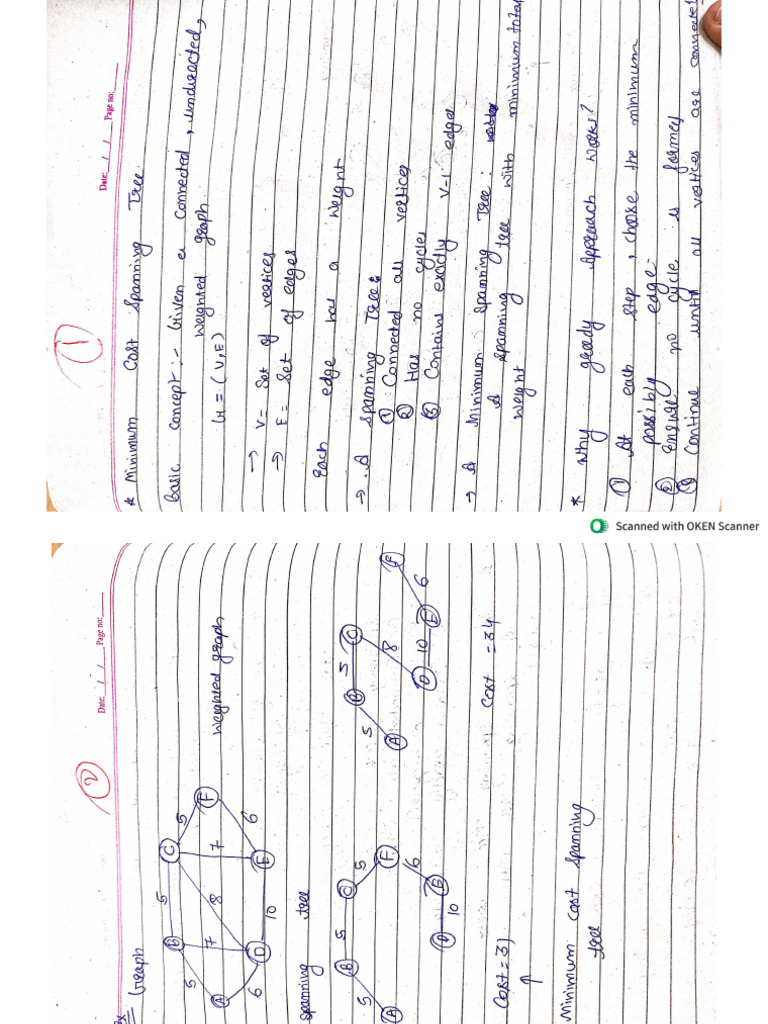 1
Date: __/__/__ Page no: ____
* Minimum Cost Spanning Tree
Basic concept :- Given a connected, undirected,
weighted graph
G = (V, E)
→ V = Set of vertices
→ E = Set of edges
Each edge has a weight
→ A spanning Tree :
① Connected all vertices
② Has no cycles
③ Contains exactly V-1 edge
→ A Minimum spanning Tree :
A spanning tree with minimum total
weight
* Why greedy Approach works?
① At each step, choose the minimum
possibly edge.
② Ensure no cycle is formed
③ Continue until all vertices are connected
Scanned with OKEN Scanner
2
Date: __/__/__ Page no: ____
Ex
Graph
A B C D E F
5 5 5 6 7 8 7 6 10
Weighted graph
spanning tree
A B C F E D
5 5 5 6 10
Cost = 31
↑
Minimum cost spanning
tree
A B C D E F
5 5 8 10 6
Cost = 34